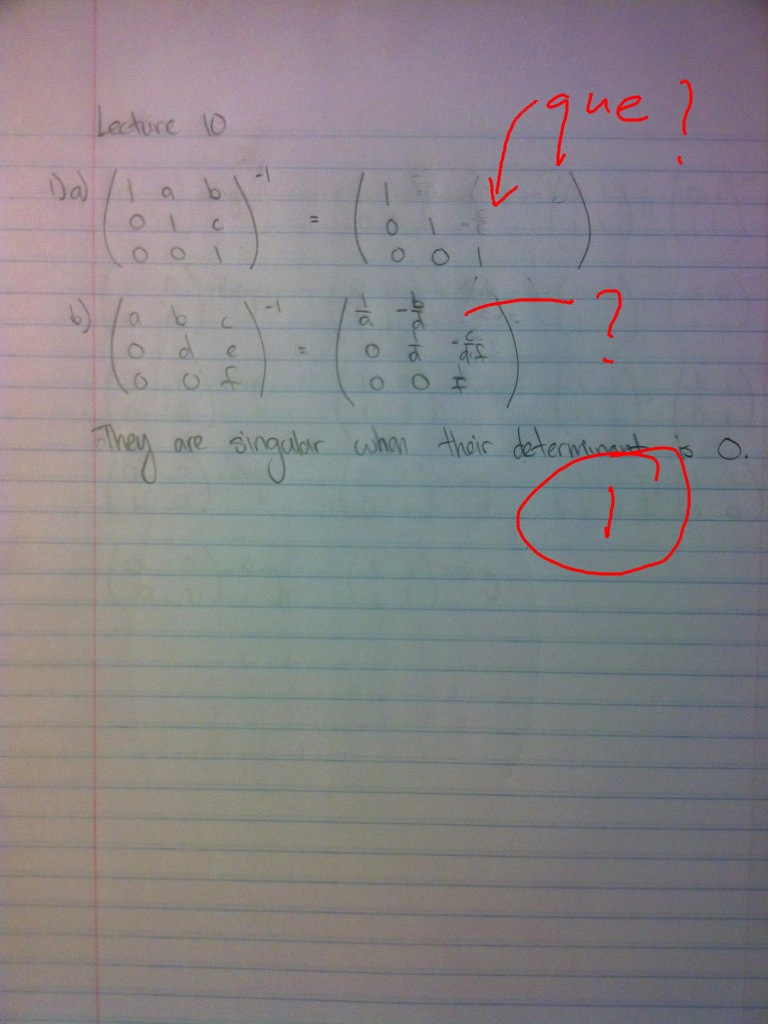 que ?
Lecture 10
1) a) ( 1 a b ; 0 1 c ; 0 0 1 )⁻¹ = ( 1 ; 0 1 - ; 0 0 1 )
b) ( a b c ; 0 d e ; 0 0 f )⁻¹ = ( 1/a -b/d ; 0 1/d -c/df ; 0 0 1/f ) ?
They are singular when their determinant is 0.
1